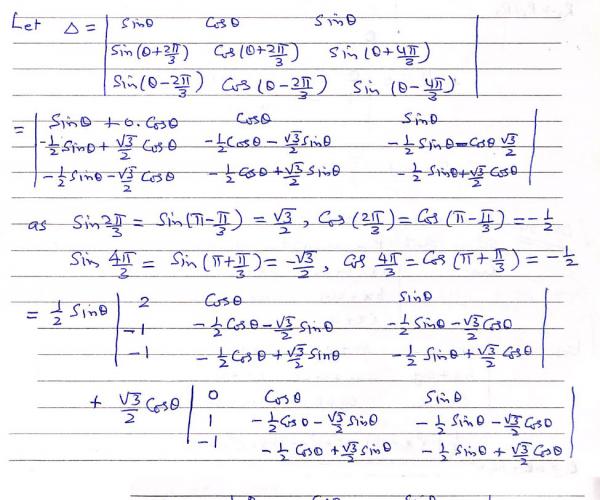 Let Δ = | Sinθ Cosθ Sinθ |
| Sin(θ+2π/3) Cos(θ+2π/3) Sin(θ+4π/3) |
| Sin(θ-2π/3) Cos(θ-2π/3) Sin(θ-4π/3) |
= | Sinθ + 0.Cosθ Cosθ Sinθ |
| -1/2 Sinθ + √3/2 Cosθ -1/2 Cosθ - √3/2 Sinθ -1/2 Sinθ - Cosθ √3/2 |
| -1/2 Sinθ - √3/2 Cosθ -1/2 Cosθ + √3/2 Sinθ -1/2 Sinθ + √3/2 Cosθ |
as Sin 2π/3 = Sin(π-π/3) = √3/2, Cos(2π/3) = Cos(π-π/3) = -1/2
Sin 4π/3 = Sin(π+π/3) = -√3/2, Cos 4π/3 = Cos(π+π/3) = -1/2
= 1/2 Sinθ | 2 Cosθ Sinθ |
| -1 -1/2 Cosθ - √3/2 Sinθ -1/2 Sinθ - √3/2 Cosθ |
| -1 -1/2 Cosθ + √3/2 Sinθ -1/2 Sinθ + √3/2 Cosθ |
+ √3/2 Cosθ | 0 Cosθ Sinθ |
| 1 -1/2 Cosθ - √3/2 Sinθ -1/2 Sinθ - √3/2 Cosθ |
| -1 -1/2 Cosθ + √3/2 Sinθ -1/2 Sinθ + √3/2 Cosθ |